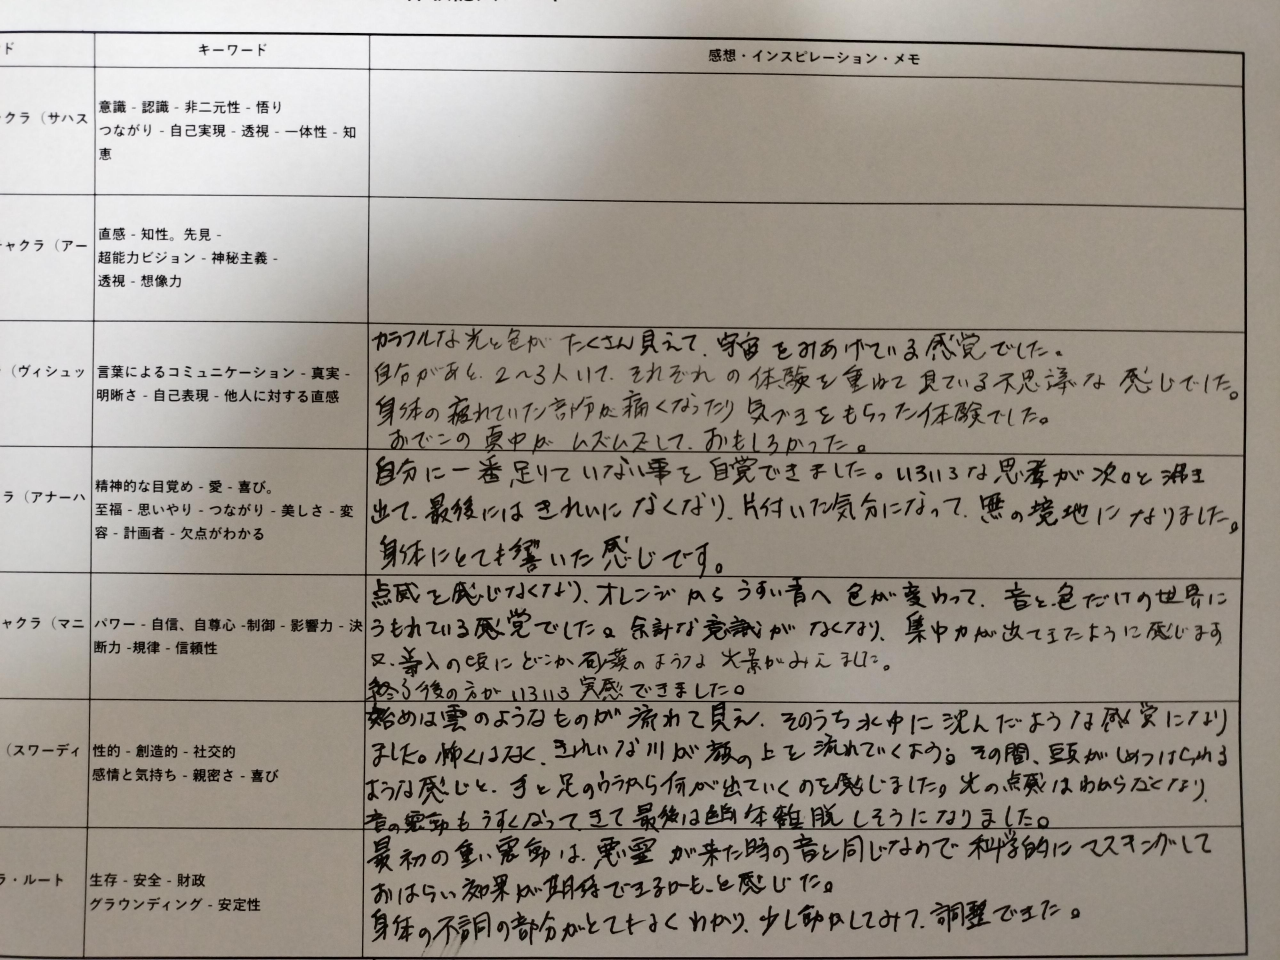 ド
キーワード
感想・インスピレーション・メモ
クラ（サハス
意識 - 認識 - 非二元性 - 悟り
つながり - 自己実現 - 透視 - 一体性 - 知
恵
ャクラ（アー
直感 - 知性。先見 -
超能力ビジョン - 神秘主義 -
透視 - 想像力
（ヴィシュッ
言葉によるコミュニケーション - 真実 -
明晰さ - 自己表現 - 他人に対する直感
カラフルな光と色がたくさん見えて、宇宙をみあげている感覚でした。
自分があと、2〜3人いて、それぞれの体験を重ねて見ている不思議な感じでした。
身体の疲れていた部分が痛くなったり気づきをもらった体験でした。
おでこの真中がムズムズして、おもしろかった。
ラ（アナーハ
精神的な目覚め - 愛 - 喜び。
至福 - 思いやり - つながり - 美しさ - 変
容 - 計画者 - 欠点がわかる
自分に一番足りていない事を自覚できました。いろいろな思考が次々と沸き
出て、最後にはきれいになくなり、片付いた気分になって、無の境地になりました。
身体にとても響いた感じです。
ャクラ（マニ
パワー - 自信、自尊心 -制御 - 影響力 - 決
断力 -規律 - 信頼性
点滅を感じなくなり、オレンジからうすい青へ色が変わって、音と色だけの世界に
うもれている感覚でした。余計な意識がなくなり、集中力が出てきたように感じます
又、導入の頃にどこか砂漠のような光景がみえました。
終了後の方がいろいろ実感できました。
（スワーディ
性的 - 創造的 - 社交的
感情と気持ち - 親密さ - 喜び
始めは雲のようなものが流れて見え、そのうち水中に沈んだような感覚になり
ました。怖くはなく、きれいな川が顔の上を流れていくよう。その間、頭がしめつけられる
ような感じと、手と足のウラから何が出ていくのを感じました。光の点滅はわからなくなり、
音の震動もうすくなってきて最後は幽体離脱しそうになりました。
ラ・ルート
生存 - 安全 - 財政
グラウンディング - 安定性
最初の重い震動は、悪霊が来た時の音と同じなので科学的にマスキングして
おはらい効果が期待できるかも、と感じた。
身体の不調の部分がとてもよくわかり、少し動かしてみて、調整できた。